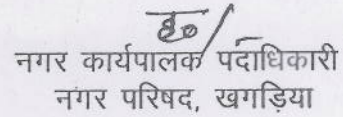 ह०/
नगर कार्यपालक पदाधिकारी
नगर परिषद, खगड़िया